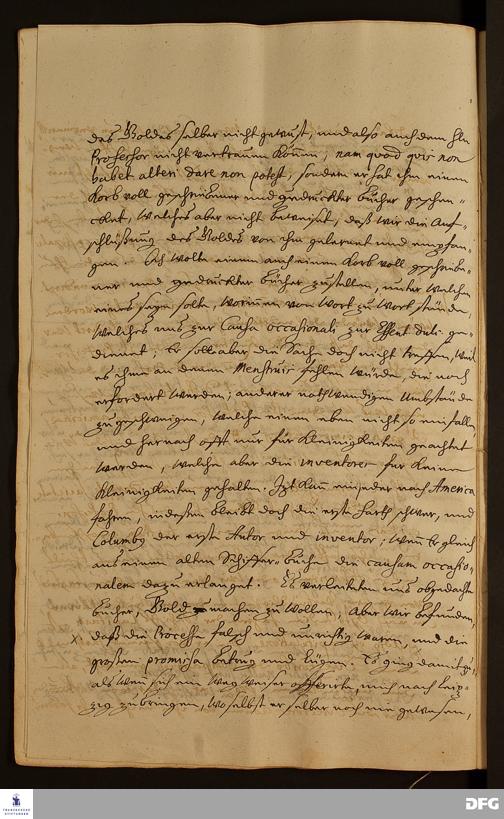 des Goldes selber nicht gewust, und also auch dem Hn
Professor nicht vertrauen können, nam quod quis non
habet alteri dare non potest, sondern er hat ihm einen
Korb voll geschriebener und gedruckter Bücher geschen-
cket, welches aber nicht beweiset, daß wir die Auf-
schlüßung des Goldes von ihm gelernet und empfan-
gen. Ich wolte einem auch einen Korb voll geschriebe-
ner und gedruckter Bücher zustellen, unter welchen
eines seyn solte, worinnen von Wort zu Wort stünde,
welches uns zur Causa occasionali zur Essent. dulc. ge-
dienet; Er soll aber die Sache doch nicht treffen, weil
es ihme an denen Menstruis fehlen würde, die noch
erfordert werden; anderer nothwendigen Umbstände
zu geschweigen, welche einem eben nicht so einfallen,
und hernach offt nur für Kleinigkeiten geachtet
werden, welche aber die inventores für keine
Kleinigkeiten gehalten. Jzt kan ein jeder nach America
fahren, indeßen bleibt doch die erste Farth schwer, und
Columbg der erste Autor und inventor; wenn Er gleich
aus einem alten Schiffer-Buche die causam occasio-
nalem dazu erlanget. Es verleiteten uns obgedachte
Bücher, Gold zu machen zu wollen; Aber wir befunden,
daß die Processe falsch und unrichtig waren, und die
großen promissa Betrug und Lügen. Es ging damit zu,
als wenn sich ein Wegweiser offerirte, mich nach Leip-
zig zu bringen, woselbst er selber noch nie gewesen,
TRANCKESCHE
STIFTUNGEN
DFG